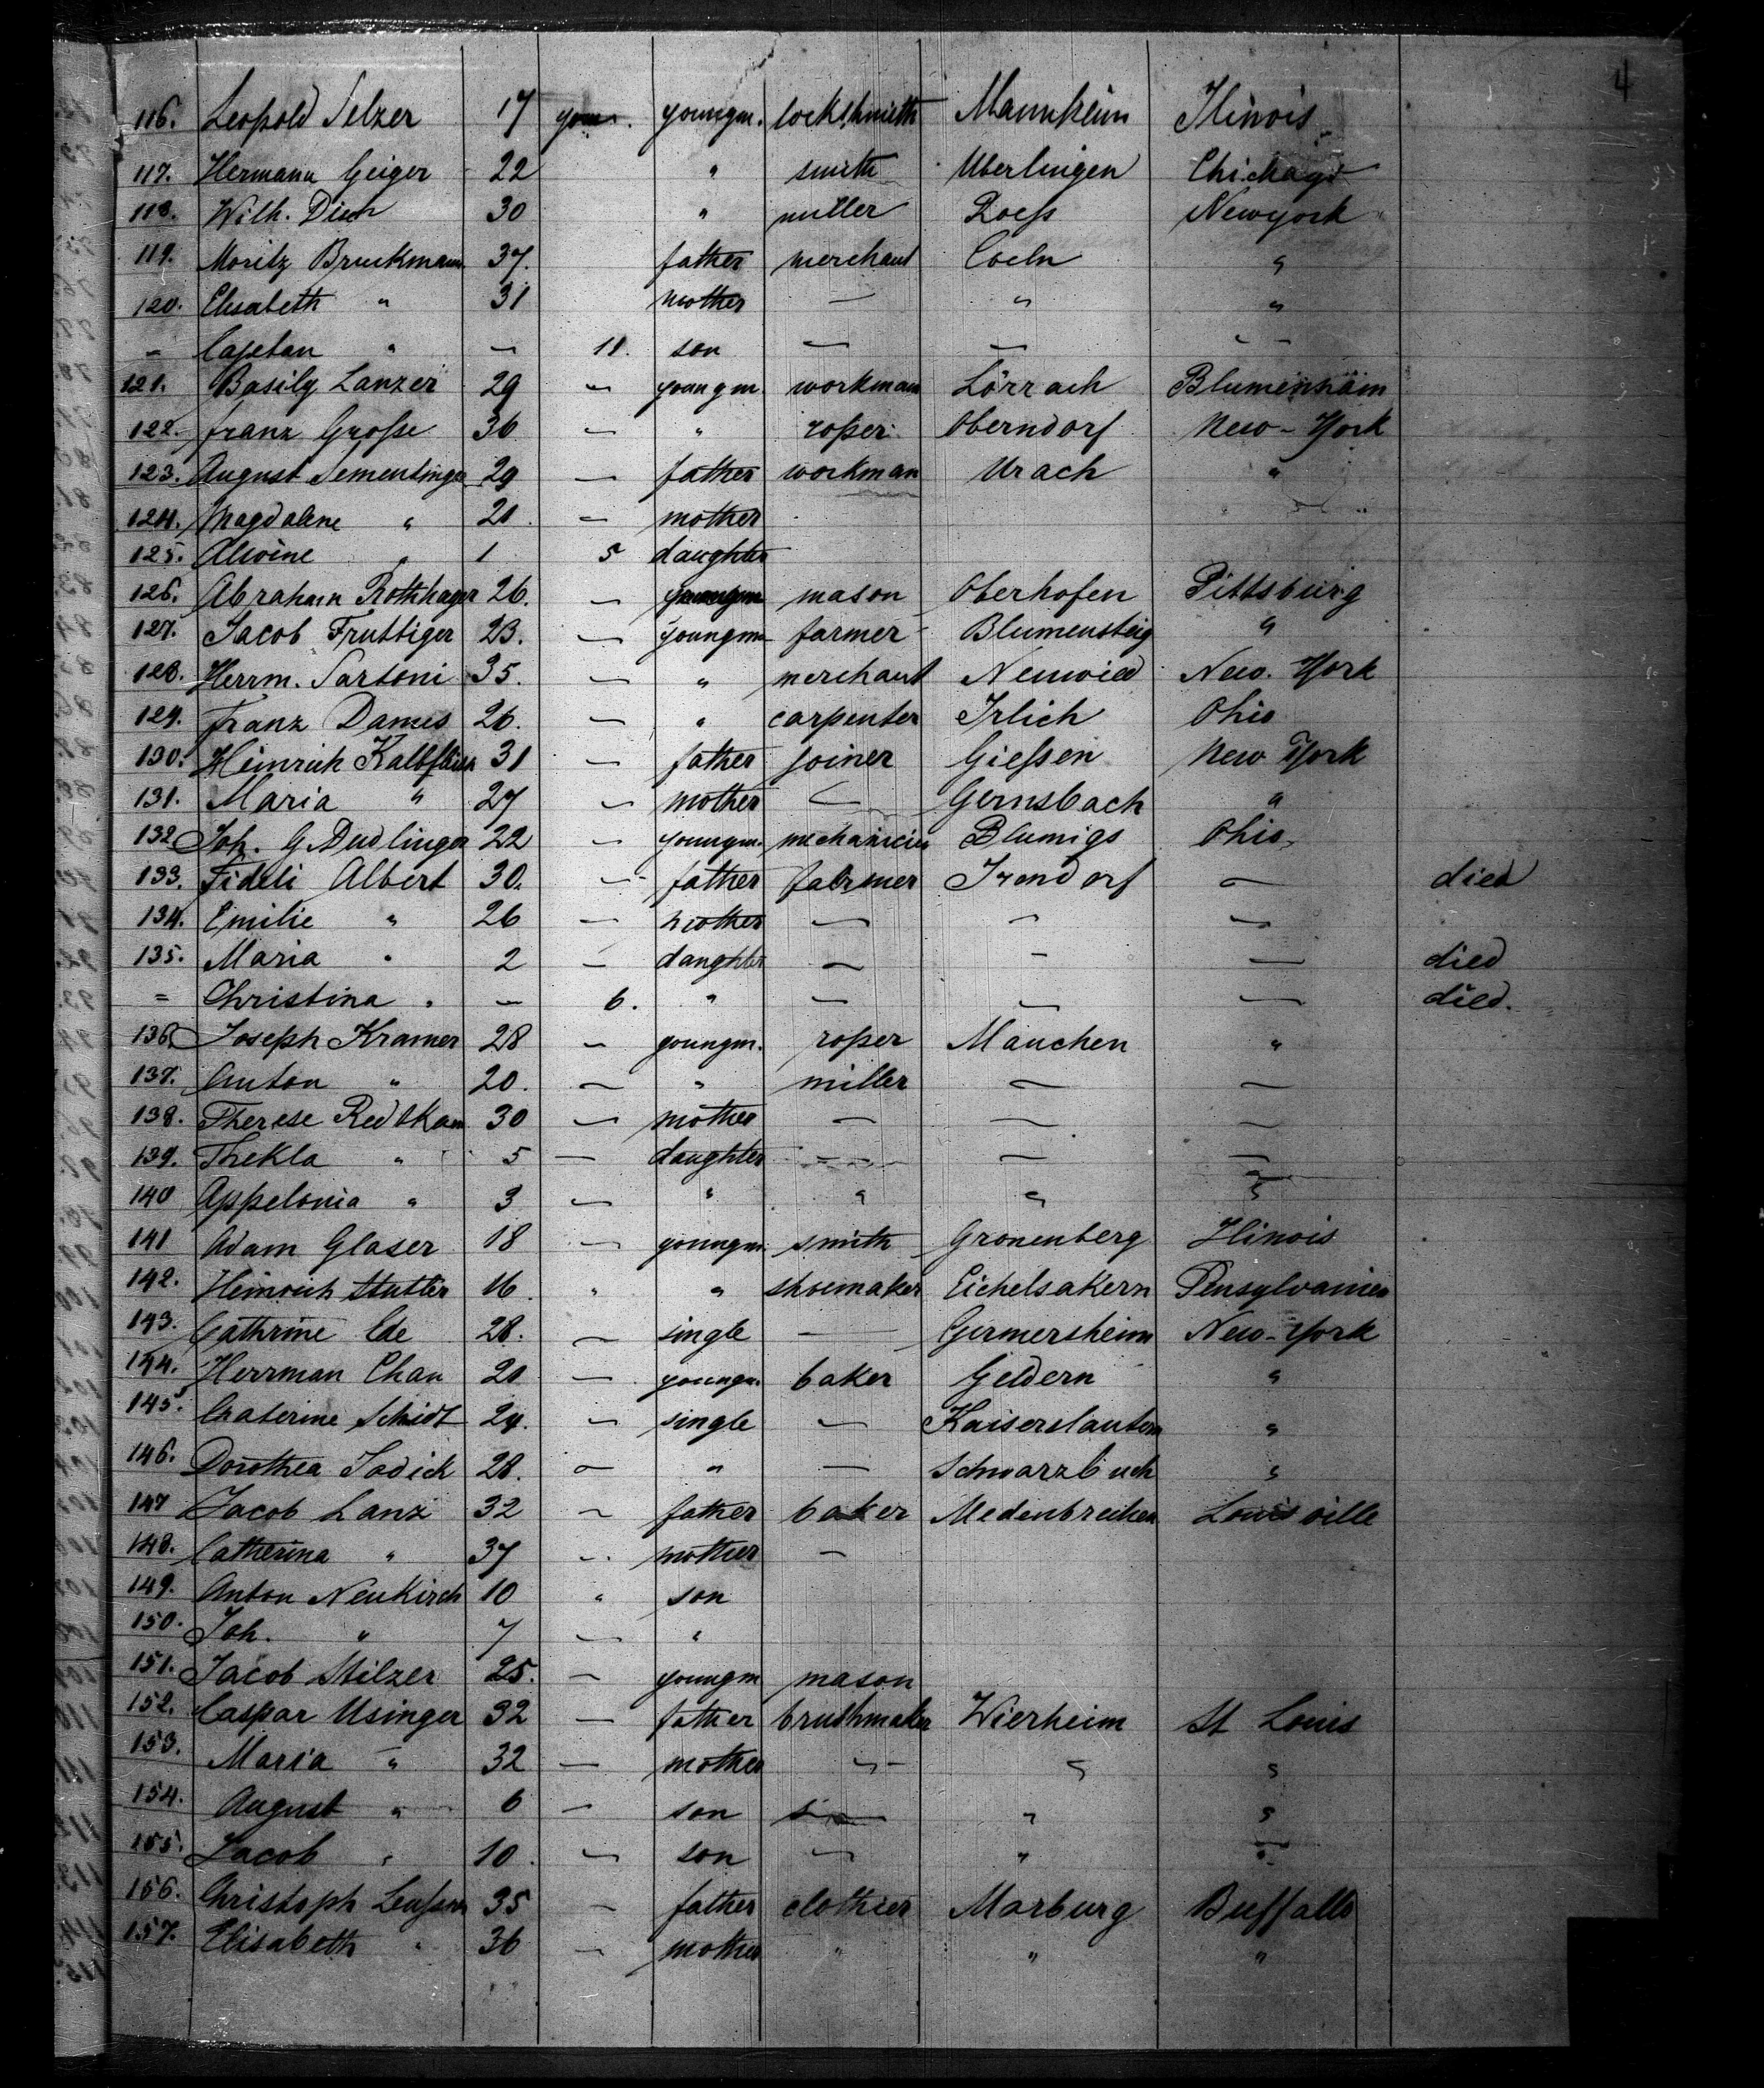 4
116. Leopold Selzer 17 youngm. lockshmith Mannheim Ilinois
117. Hermann Geiger 22 " smith Uberlingen Chichago
118. Wilh. 30 " miller Newyork
119. Moritz Bruckmann 37. father merchant Coeln "
120. Elisabeth " 31 mother — " "
– Cajetan " — 11. son — — —
121. Basily Lanzer 29 — youngm. workman Lörrach Blumenhäim
122. Franz Große 36 — " roper Oberndorf New-York
123. August 29 — father workman Urach "
124. Magdalene " 21. — mother
125. Alwine " 1 5 daughter
126. Abraham Rothhager 26. — youngm mason Oberhofen Pittsburg
127. Jacob Fruttiger 23. — youngm farmer Blumensteig "
128. Herrm. Sartoni 35. — " merchant Neuwied New-York
129. Franz Dames 26. — " carpenter Irlich Ohio
130. Heinrich 31 — father joiner Gießen New York
131. Maria " 27 — mother — Gernsbach "
132 Joh. G. Dudlinger 22 — youngm. mechanicien Blumigs Ohio
133. Fideli Albert 30. — father farmer Irendorf — died
134. Emilie " 26 — mother — — —
135. Maria " 2 — daughter — — — died
= Christina " — 6. " — — — died.
136. Joseph Kramer 28 — youngm. roper Mauchen "
137. Anton " 20. — " miller — —
138. Therese 30 — mother — — —
139. Thekla " 5 — daughter — — —
140 Appelonia " 3 — " " " "
141 Adam Glaser 18 — youngm. smith Gronenberg Ilinois
142. Heinrich Stutter 16. " " shoemaker Eichelsakern Pensylvanien
143. Cathrine Ede 28. — single — Germersheim New-York
144. Herrman Chan 21 — youngm. baker Geldern "
145. Chaterine Schidt 24. — single — Kaiserslautern "
146. Dorothea Jodick 28. — " — Schwarzbuch "
147 Jacob Lanz 32 — father baker Louisville
148. Catherina " 37 — mother —
149. Anton Neukirch 10 " son
150. Joh. " 7 — "
151. Jacob Stilzer 25. — youngm mason
152. Caspar Usinger 32 — father brushmaker Wierheim St Louis
153. Maria " 32 — mother " " "
154. August " 6 — son " "
155. Jacob " 10. — son — " "
156. Christoph 35 — father clothier Marburg Buffallo
157. Elisabeth " 36 — mother " " "